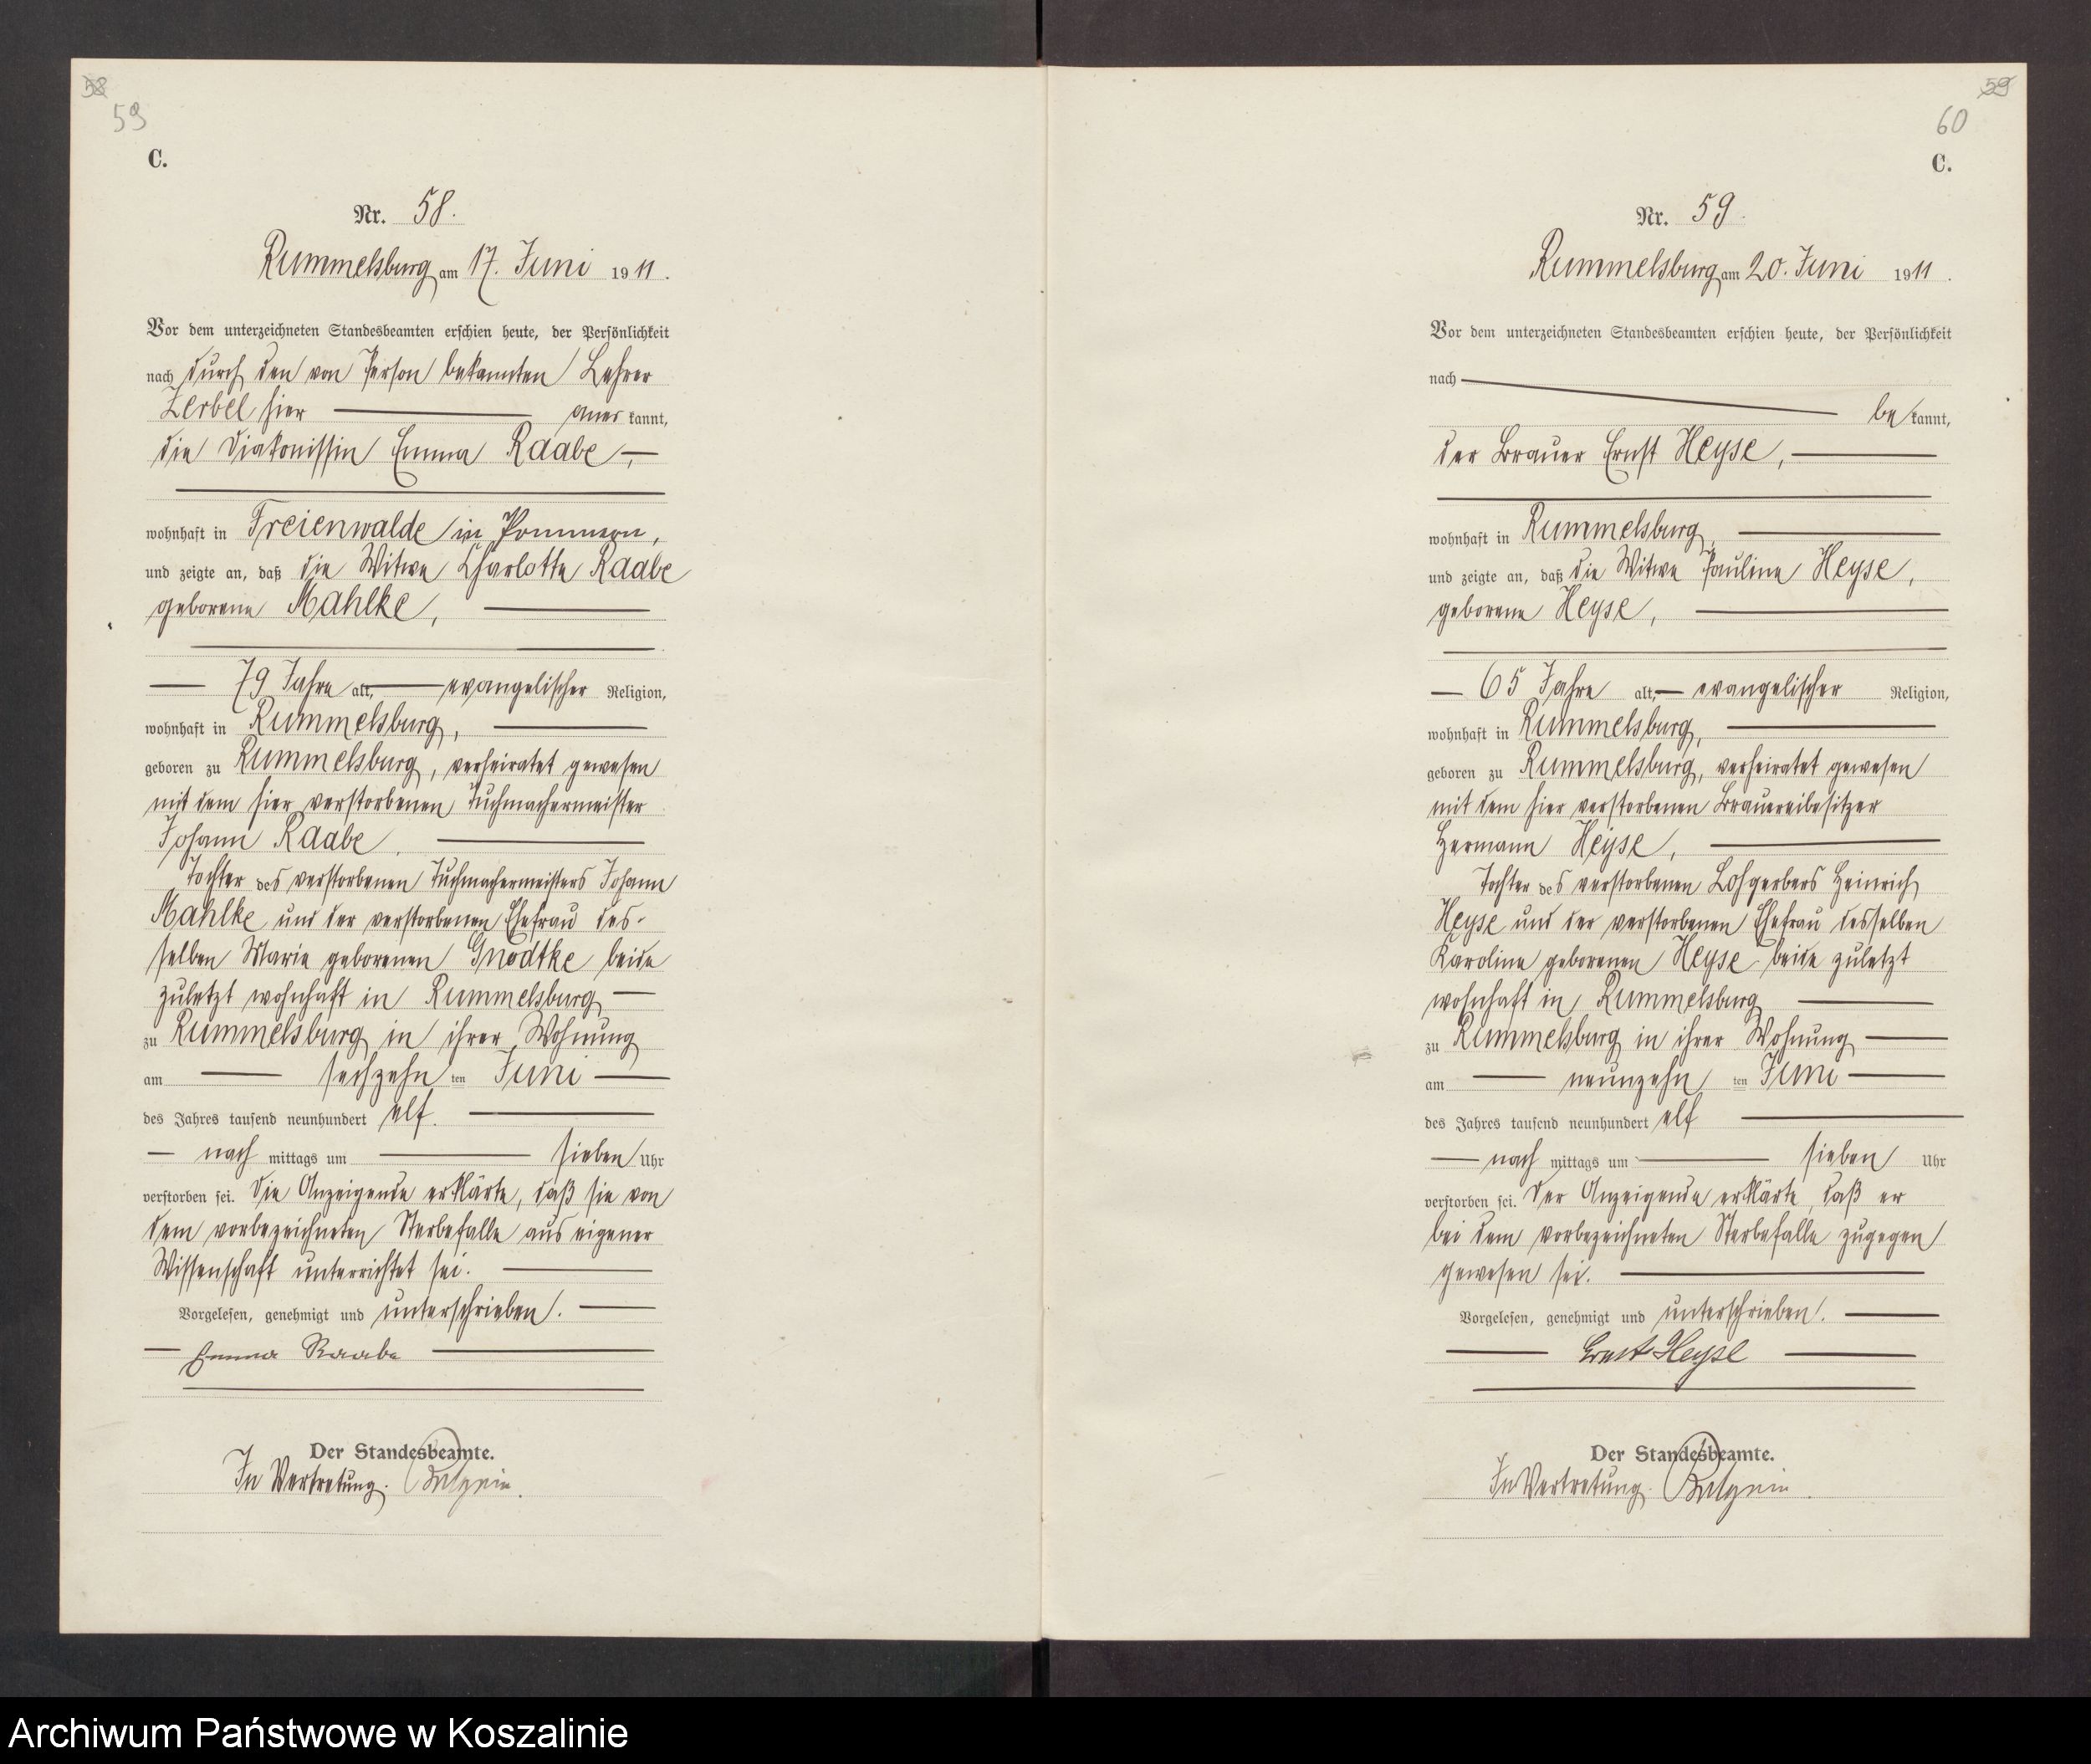 58
59
C.
Nr. 58.
Rummelsburg am 17. Juni 1911.
Vor dem unterzeichneten Standesbeamten erschien heute, der Persönlichkeit
nach durch den von Person bekannten Lehrer
Zerbel hier aner kannt,
die Diakonissin Emma Raabe,
wohnhaft in Freienwalde in Pommern,
und zeigte an, daß die Witwe Charlotte Raabe
geborene Mahlke,
79 Jahre alt, evangelischer Religion,
wohnhaft in Rummelsburg,
geboren zu Rummelsburg, verheiratet gewesen
mit dem hier verstorbenen Tuchmachermeister
Johann Raabe.
Tochter des verstorbenen Tuchmachermeisters Johann
Mahlke und der verstorbenen Ehefrau des-
selben Marie geborenen Gnodtke beide
zuletzt wohnhaft in Rummelsburg
zu Rummelsburg in ihrer Wohnung
am sechzehn ten Juni
des Jahres tausend neunhundert elf.
nach mittags um sieben Uhr
verstorben sei. Die Anzeigende erklärte, daß sie von
dem vorbezeichneten Sterbefalle aus eigener
Wissenschaft unterrichtet sei.
Vorgelesen, genehmigt und unterschrieben.
Emma Raabe
Der Standesbeamte.
In Vertretung.
59
60
C.
Nr. 59.
Rummelsburg am 20. Juni 1911.
Vor dem unterzeichneten Standesbeamten erschien heute, der Persönlichkeit
nach
be kannt,
der Brauer Ernst Heyse,
wohnhaft in Rummelsburg,
und zeigte an, daß die Witwe Pauline Heyse,
geborene Heyse,
65 Jahre alt, evangelischer Religion,
wohnhaft in Rummelsburg,
geboren zu Rummelsburg, verheiratet gewesen
mit dem hier verstorbenen Brauereibesitzer
Hermann Heyse,
Tochter des verstorbenen Lohgerbers Heinrich
Heyse und der verstorbenen Ehefrau desselben
Karoline geborenen Heyse beide zuletzt
wohnhaft in Rummelsburg
zu Rummelsburg in ihrer Wohnung
am neunzehn ten Juni
des Jahres tausend neunhundert elf
nach mittags um sieben Uhr
verstorben sei. Der Anzeigende erklärte, daß er
bei dem vorbezeichneten Sterbefalle zugegen
gewesen sei.
Vorgelesen, genehmigt und unterschrieben.
Ernst Heyse
Der Standesbeamte.
In Vertretung.
Archiwum Państwowe w Koszalinie